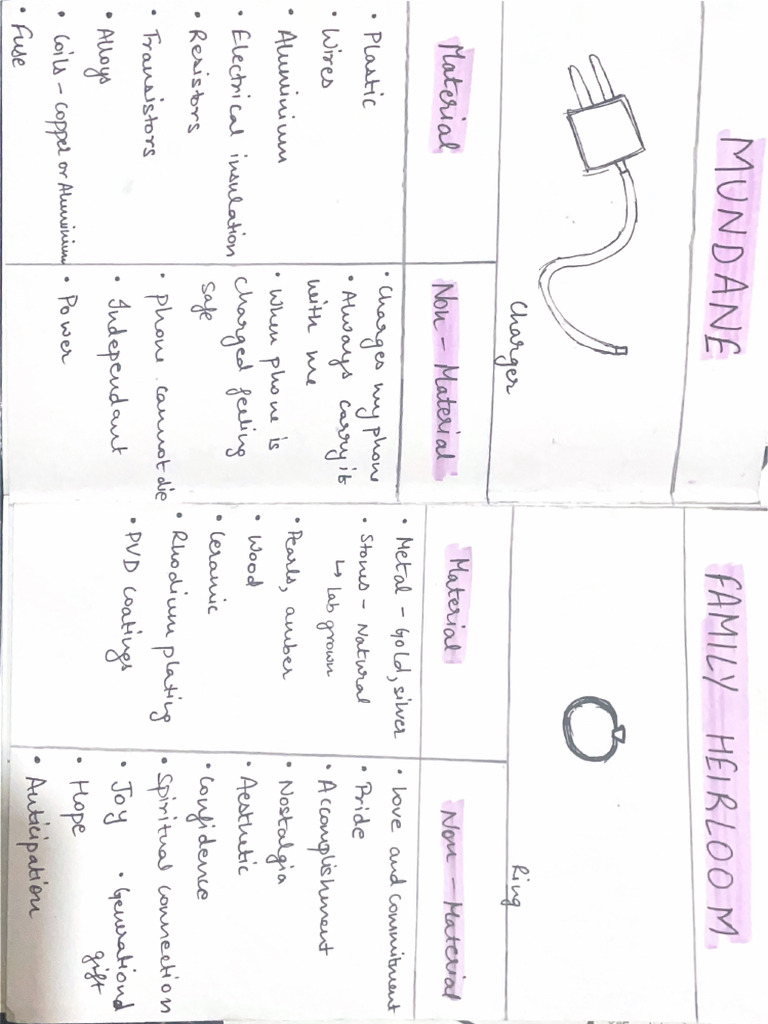 MUNDANE
Charger
Material
• Plastic
• Wires
• Aluminium
• Electrical insulation
• Resistors
• Transistors
• Alloys
• Coils - Copper or Aluminium
• Fuse
Non - Material
• Charges my phone
• Always carry it
with me
• When phone is
charged feeling
safe
• phone cannot die
• Independant
• Power
FAMILY HEIRLOOM
Ring
Material
• Metal - Gold, silver
• Stones - Natural
↳ lab grown
• Pearls, amber
• Wood
• Ceramic
• Rhodium plating
• PVD coatings
Non - Material
• Love and commitment
• Pride
• Accomplishment
• Nostalgia
• Aesthetic
• Confidence
• Spiritual connection
• Joy • Generational
gift
• Hope
• Anticipation